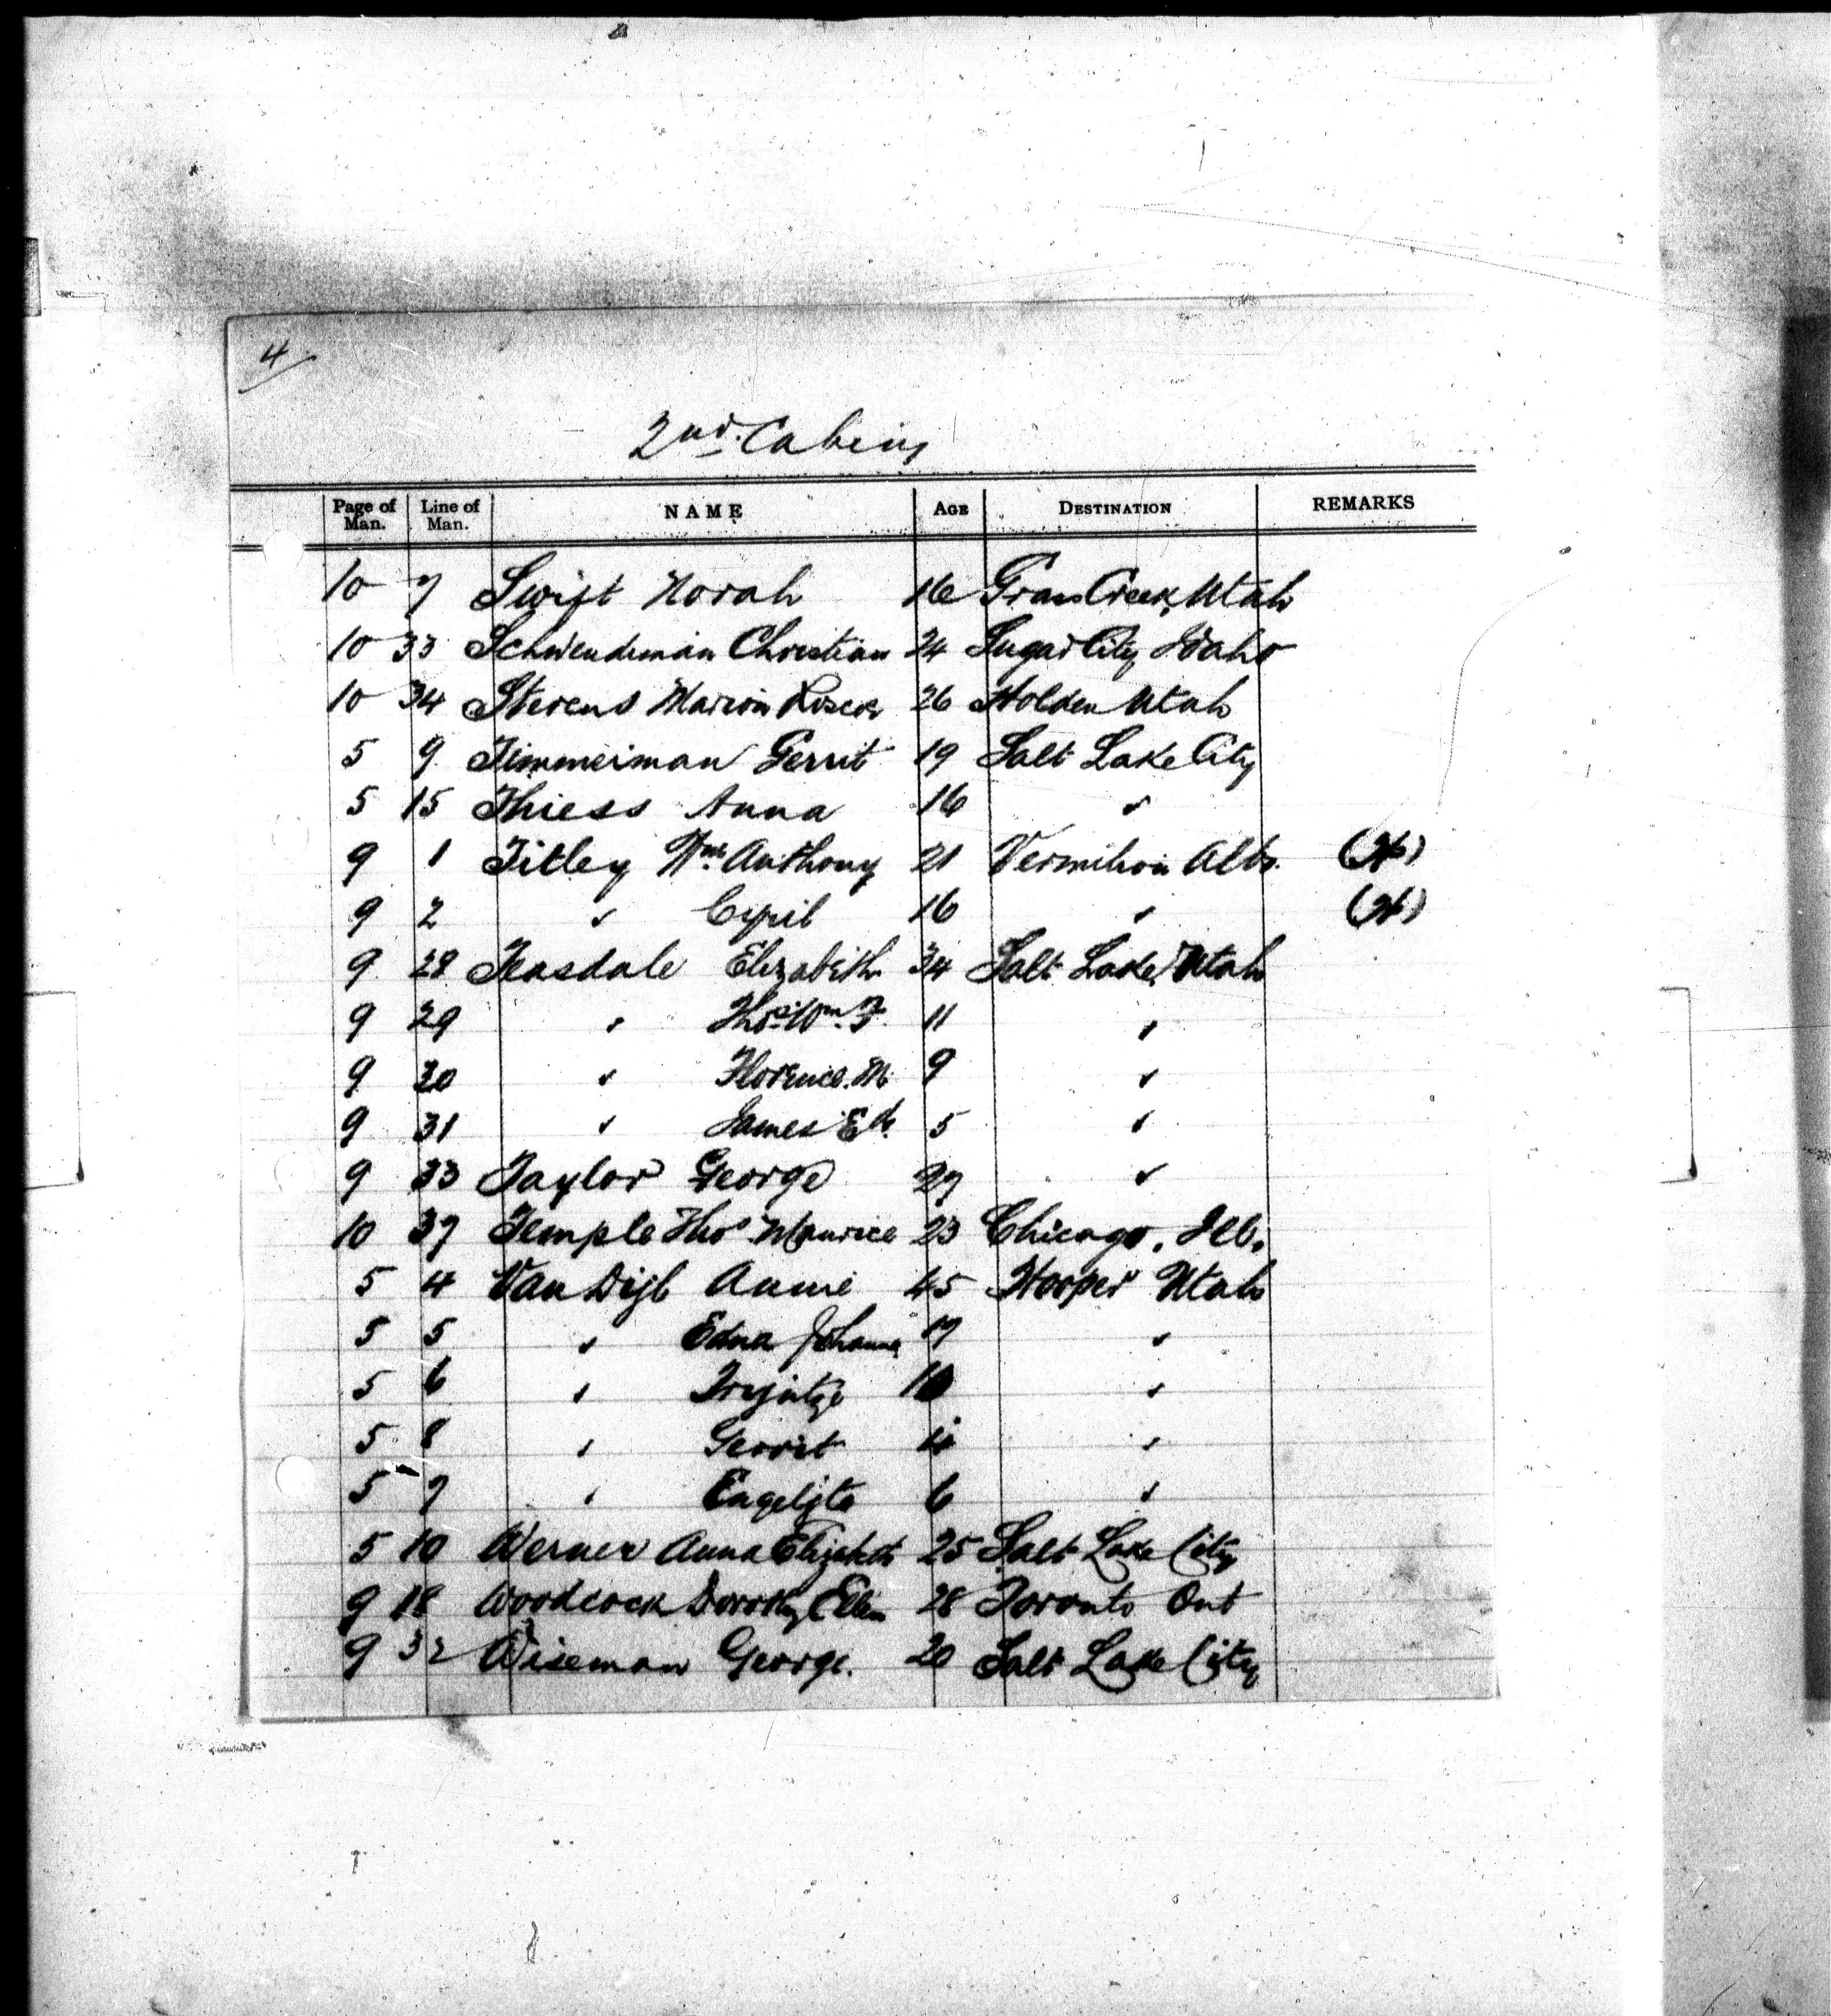 4
2nd. Cabins
Page of Man. Line of Man. NAME AGE DESTINATION REMARKS
10 7 Swift Norah 16 Grass Creek, Utah
10 33 Schwendiman Christian 24 Sugar City Idaho
10 34 Stevens Marion 26 Holden Utah
5 9 Timmerman Gerrit 19 Salt Lake City
5 15 Thiess Anna 16 "
9 1 Titley Wm. Anthony 21 Vermilion Alta. (H)
9 2 " Cyril 16 " (H)
9 28 Teasdale Elizabeth 34 Salt Lake, Utah
9 29 " Thos. Wm. F. 11 "
9 30 " Florence. M. 9 "
9 31 " James Ed. 5 "
9 33 Taylor George 27 "
10 37 Temple Thos Maurice 23 Chicago, Ill.
5 4 Van Dijk Annie 45 Hooper Utah
5 5 " Edna Johanna 17 "
5 6 " Tryntje 10 "
5 8 " Gerrit "
5 7 " Engeltje 6 "
5 10 Werner Anna Elizabeth 25 Salt Lake City
9 18 Woodcock Dorothy Ellen 28 Toronto Ont
9 32 Wiseman George. 20 Salt Lake City